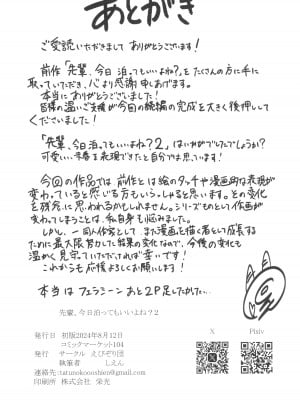 あとがき
ご愛読いただきまして ありがとうございます！
前作「先輩、今日 泊ってもいいよね？」をたくさんの方に手に
取っていただき、心より感謝申しあげます。
本当にありがとうございました！
皆様の温いご支援が今回の続編の完成を大きく後押しして
くださいました！
「先輩、今日泊ってもいいよね？２」はいかがでしたでしょうか？
可愛い 千春を表現できたと自分では思っています！
今回の作品では 前作とは絵のタッチや漫画的な表現が
変わっていると感じる方もいらっしゃると思います。との変化
を残念に思われるかもしれません。シリーズものとして作画が
変わってしまうことは、私自身も悩みました。
しかし、一同人作家として、また漫画を描く者として成長する
ために最大限努力した結果の変化なので、今後の変化も
温かく見守っていただければ幸いです！
これからも応援よろしくお願いします！
本当は フェラシーン あと２P足したかった…
先輩、今日泊ってもいいよね？2
発行日 初版2024年8月12日
コミックマーケット104
発行 サークル えびぞり団
執筆者 しえん
連絡先:taturokooooshien@gmail.com
印刷所 株式会社 栄光
X
Pixiv